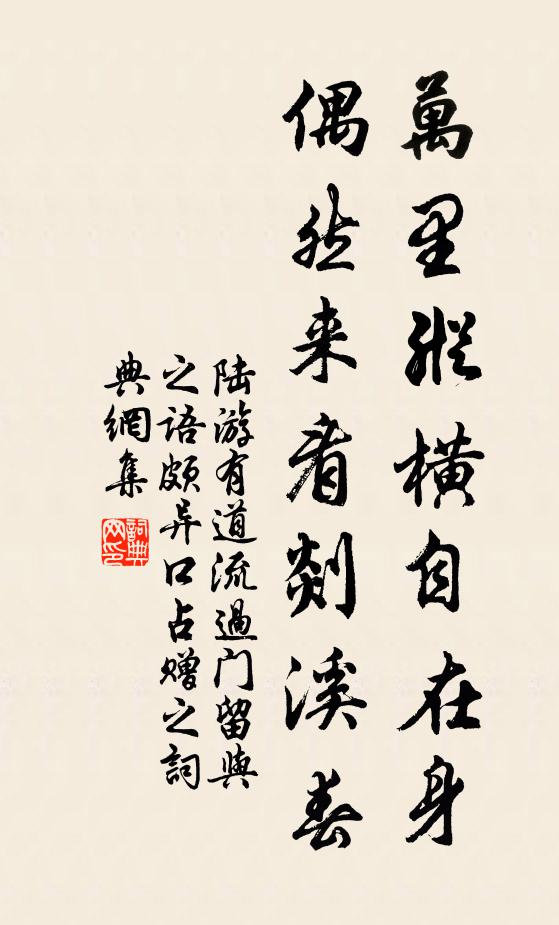 萬里縱橫自在身
偶然来看剡溪春
陆游有道流過门留與
之語頗异口占赠之詞
典網集
詞典
网印